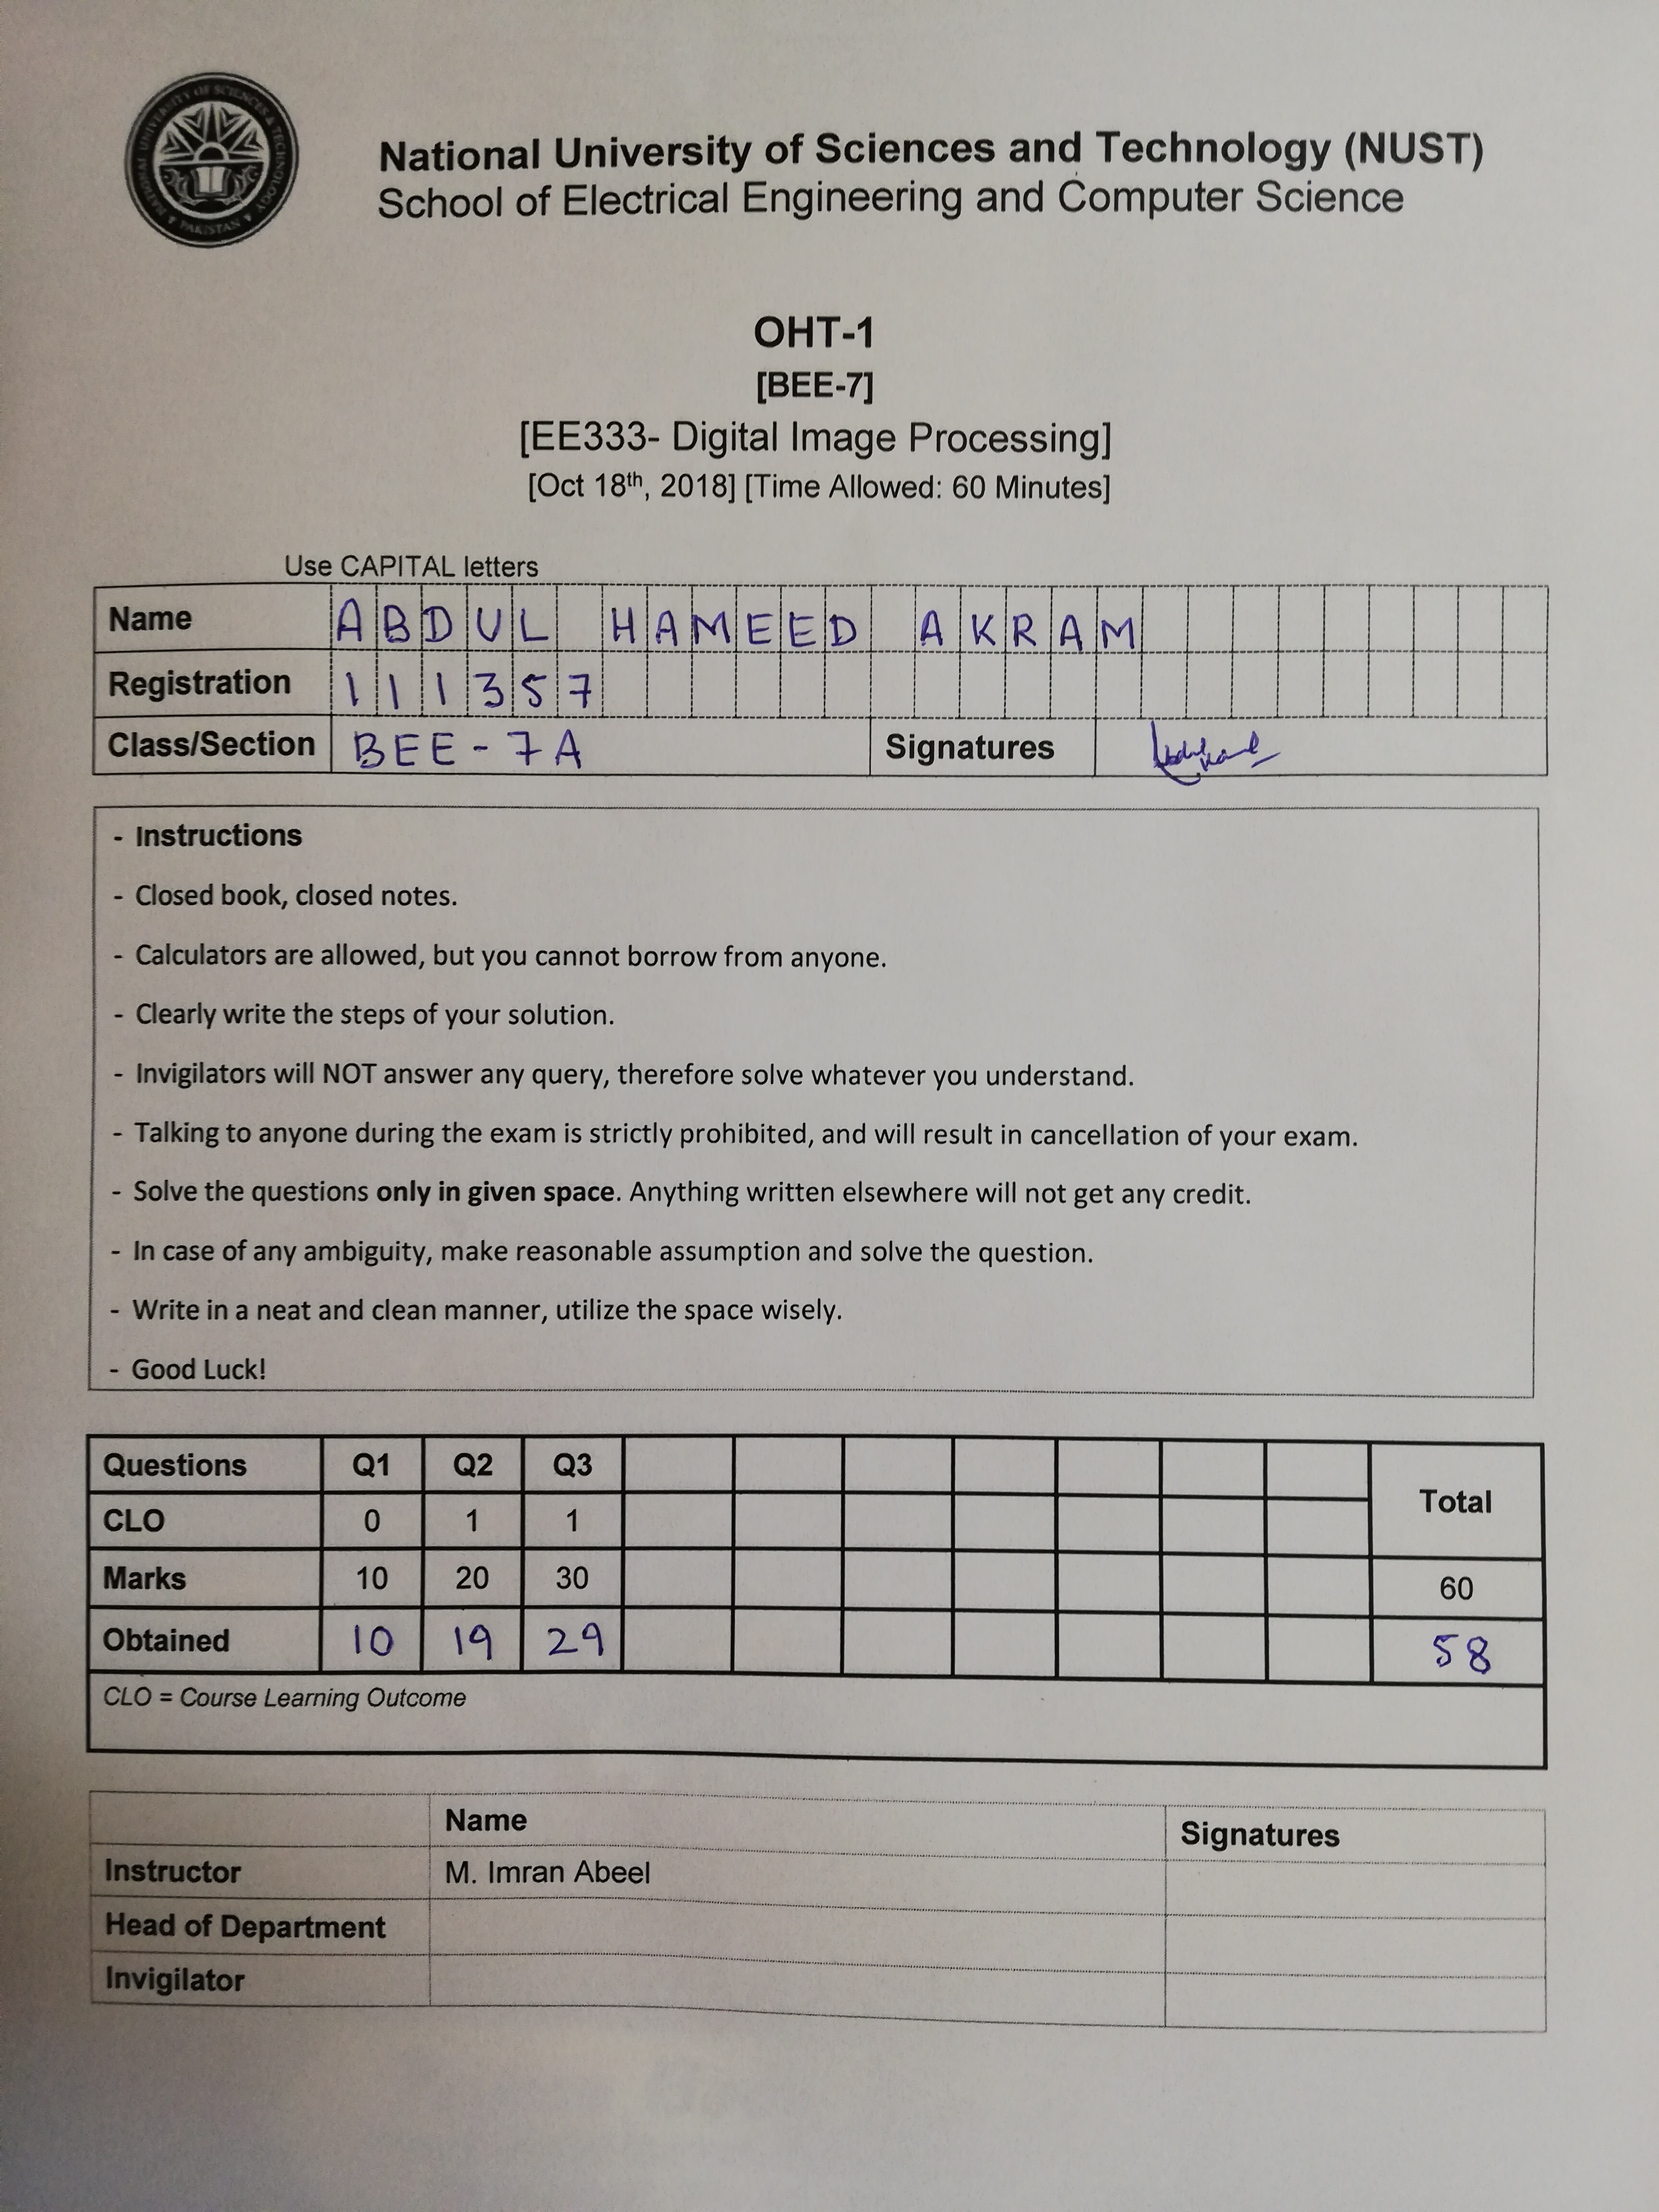 NATIONAL UNIVERSITY OF SCIENCES & TECHNOLOGY
PAKISTAN
National University of Sciences and Technology (NUST)
School of Electrical Engineering and Computer Science
OHT-1
[BEE-7]
[EE333- Digital Image Processing]
[Oct 18th, 2018] [Time Allowed: 60 Minutes]
Use CAPITAL letters
Name ABDUL HAMEED AKRAM
Registration 111357
Class/Section BEE-7A Signatures
- Instructions
- Closed book, closed notes.
- Calculators are allowed, but you cannot borrow from anyone.
- Clearly write the steps of your solution.
- Invigilators will NOT answer any query, therefore solve whatever you understand.
- Talking to anyone during the exam is strictly prohibited, and will result in cancellation of your exam.
- Solve the questions only in given space. Anything written elsewhere will not get any credit.
- In case of any ambiguity, make reasonable assumption and solve the question.
- Write in a neat and clean manner, utilize the space wisely.
- Good Luck!
Questions Q1 Q2 Q3 Total
CLO 0 1 1
Marks 10 20 30 60
Obtained 10 19 29 58
CLO = Course Learning Outcome
Name Signatures
Instructor M. Imran Abeel
Head of Department
Invigilator